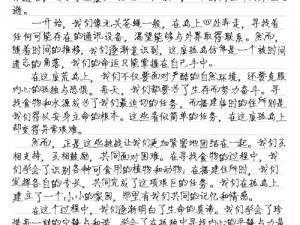 避。
一开始，我们像无头苍蝇一般，在岛上四处奔走，寻找着
任何可能存在的通讯设备，渴望能够与外界取得联系。然而，
随着时间的推移，我们逐渐意识到，这座孤岛似乎是一个被时间
遗忘的角落，我们的命运只能掌握在自己手中。
在这座荒岛上，我们不仅要面对严酷的自然环境，还要克服
内心的孤独与恐惧。每天，我们都要为了生存而努力奋斗。寻
找食物和水源成了我们最迫切的任务，而搭建临时的住所则是
我们得以安身立命的根本。这些看似简单的任务，在这座孤岛上
却变得异常艰难。
然而，正是这些挑战让我们更加紧密地团结在一起。我们互
相支持，互相鼓励，共同面对困难。在寻找食物的过程中，我
们学会了识别各种可食用的植物和动物。在搭建住所时，我们
发挥各自的专长，共同完成了这项艰巨的任务。我们在孤岛上
建立了一个小小的家园，那里有我们共同的记忆和情感。
在这个过程中，我们逐渐明白了生命的真谛。我们学会了珍